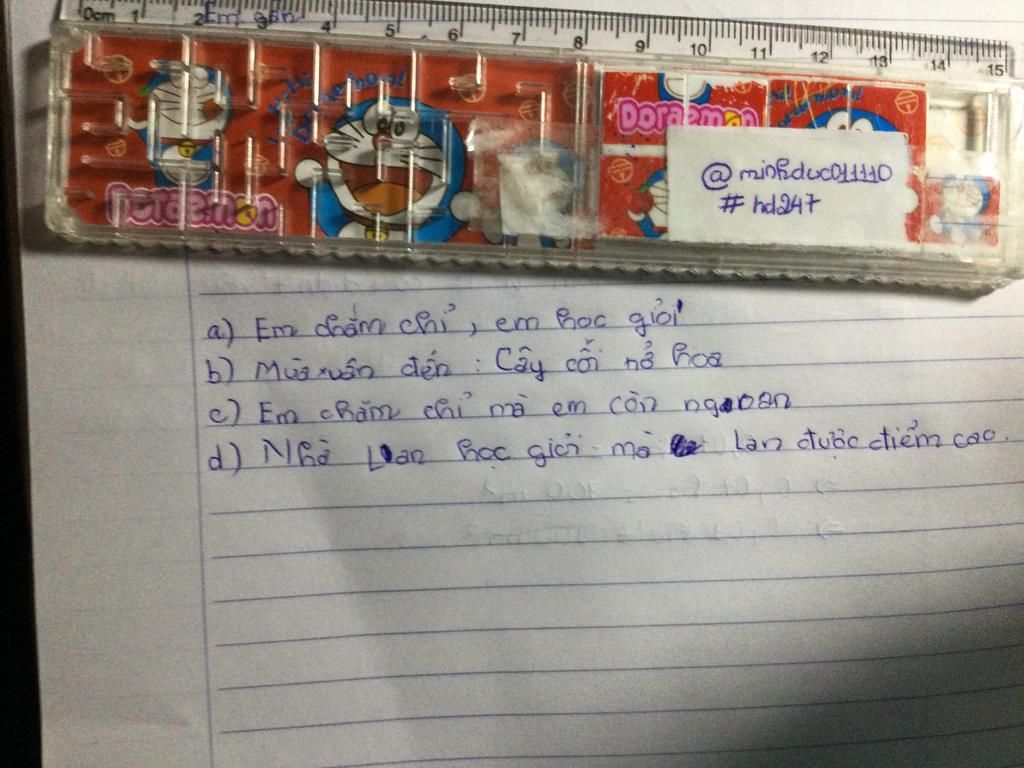 0cm 1 2 3 4 5 6 7 8 9 10 11 12 13 14 15
Em
Doraemon!
Doraemon
Doraemon
@minhduc011110
#hd247
a) Em chăm chỉ, em học giỏi
b) Mùa xuân đến: Cây cối nở hoa
c) Em chăm chỉ mà em còn ngoan
d) Nhờ Lan học giỏi mà Lan được điểm cao.